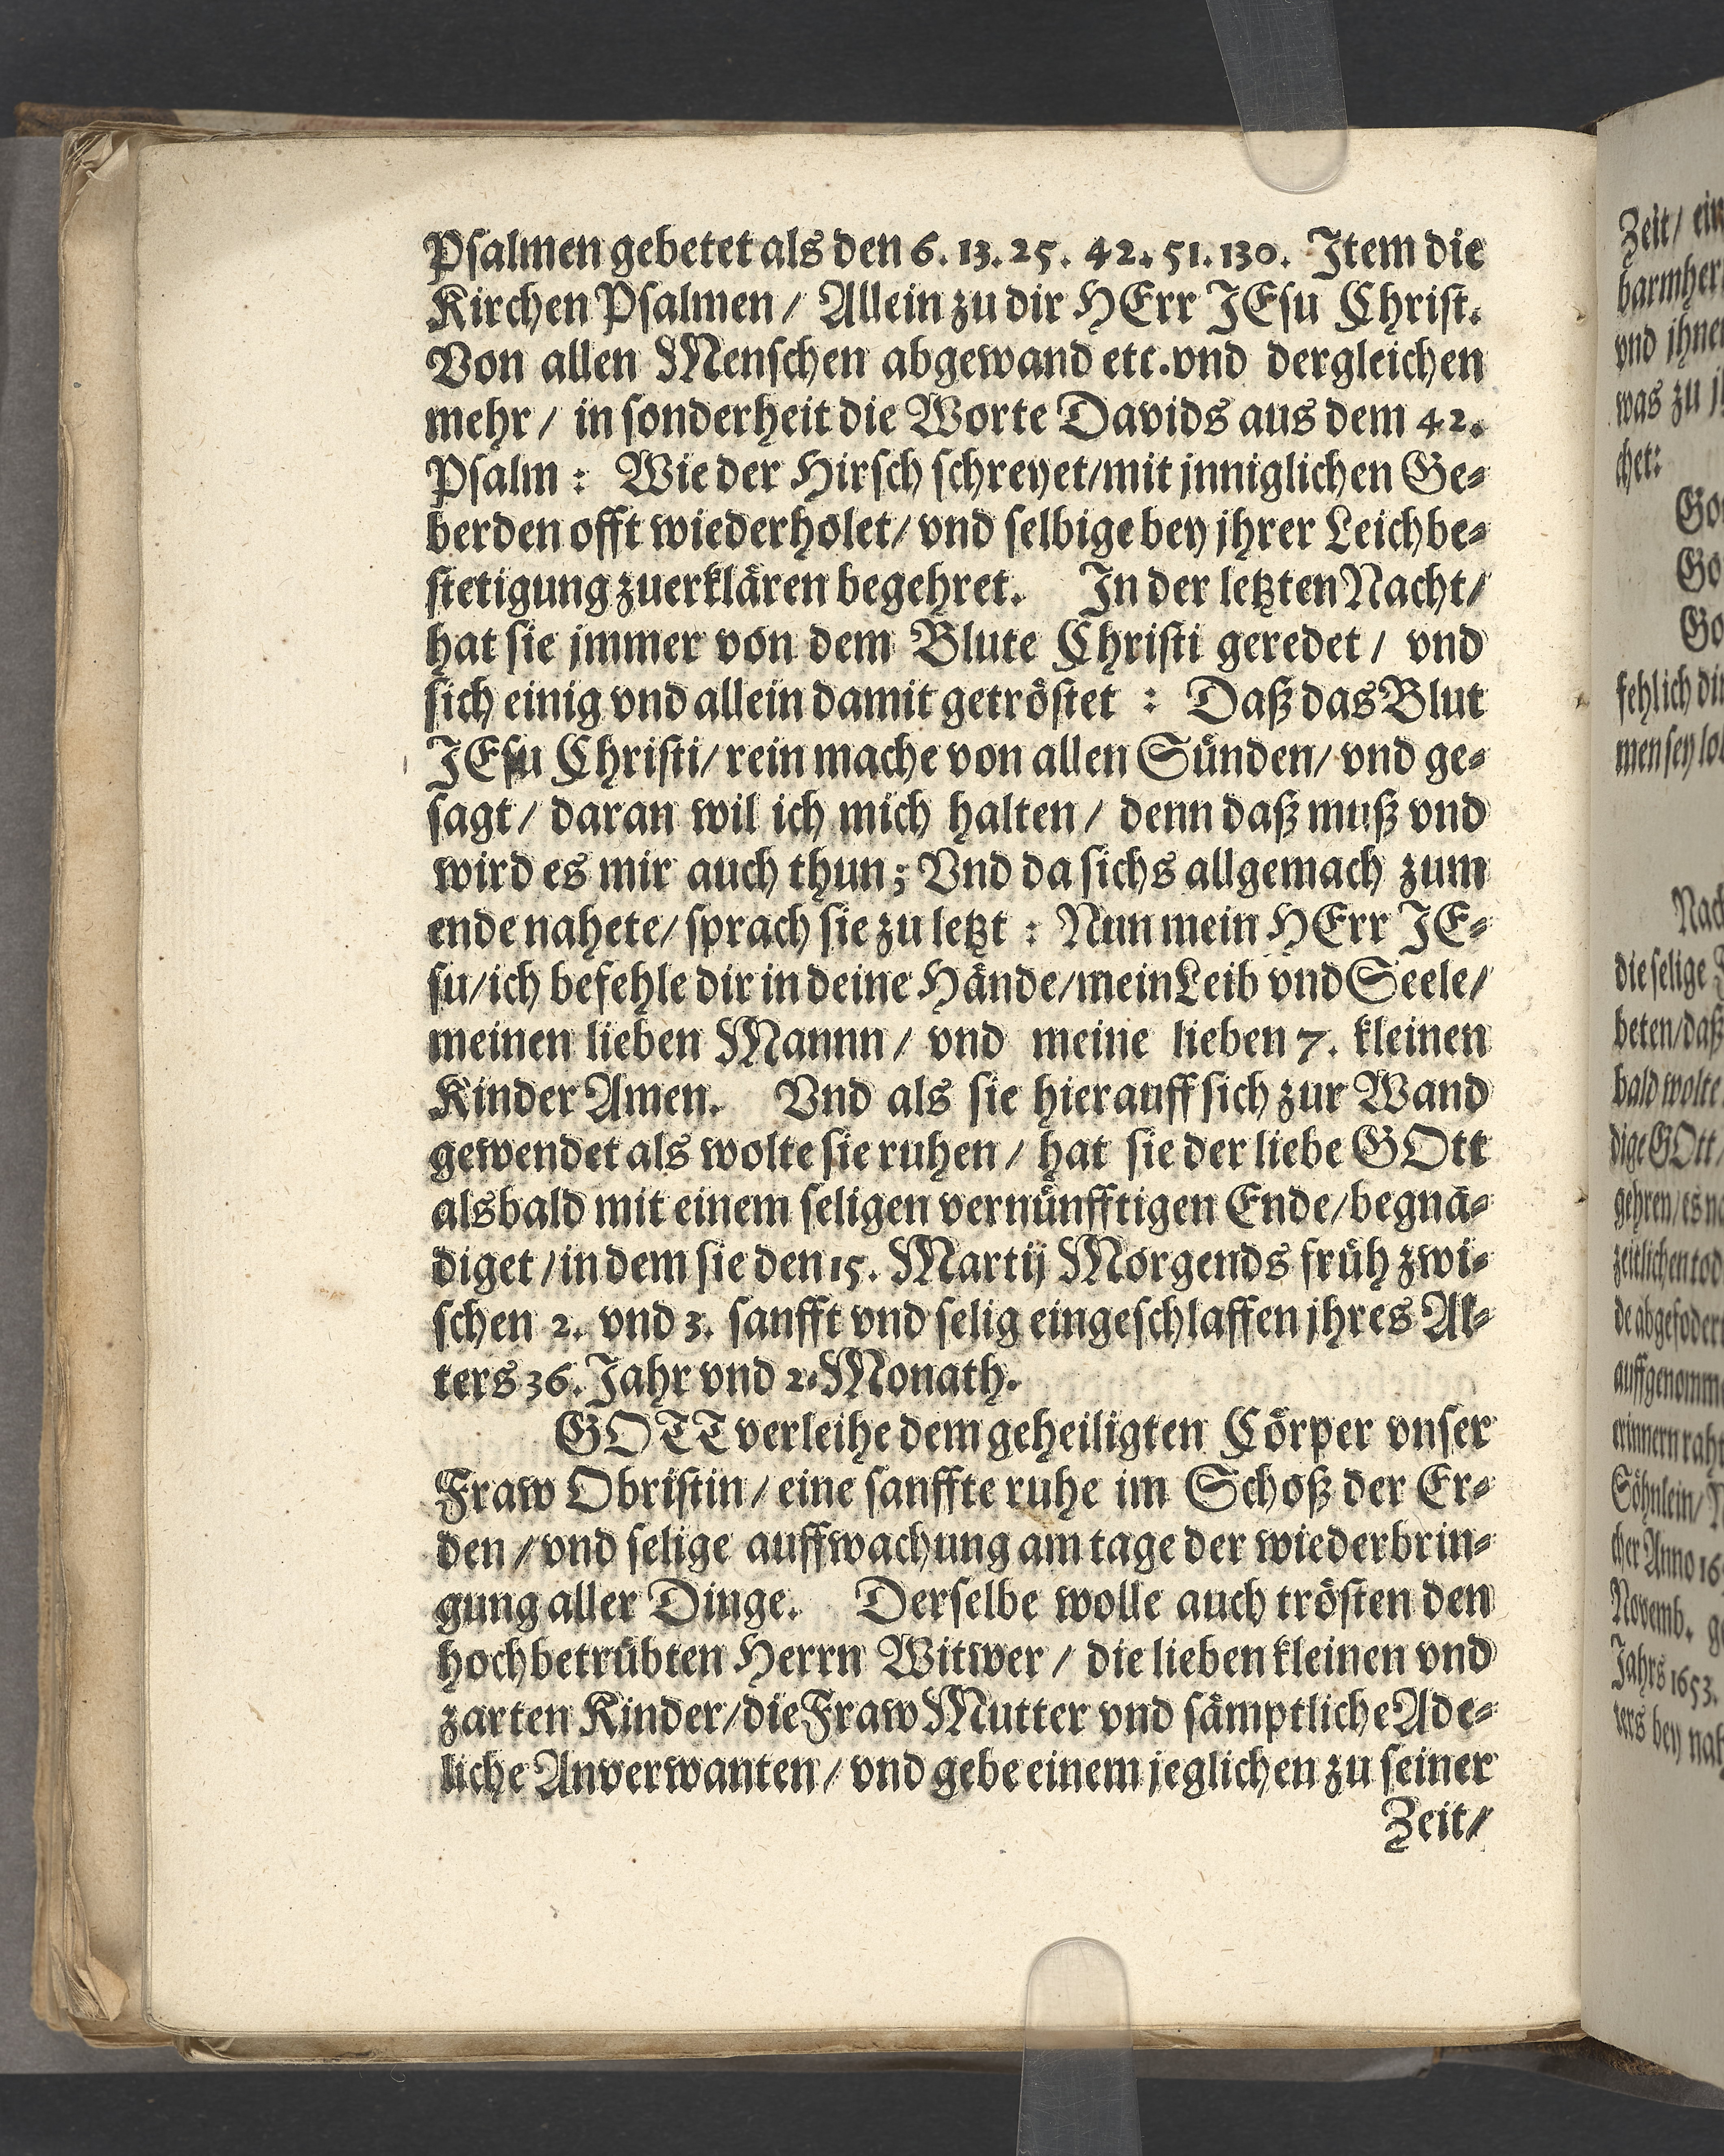 Psalmen gebetet als den 6. 13. 25. 42. 51. 130. Item die
Kirchen Psalmen / Allein zu dir HErr JEsu Christ.
Von allen Menschen abgewand etc. vnd dergleichen
mehr / in sonderheit die Worte Davids aus dem 42.
Psalm : Wie der Hirsch schreyet/mit jnniglichen Ge-
berden offt wiederholet/ vnd selbige bey jhrer Leichbe-
stetigung zuerklären begehret. In der letzten Nacht/
hat sie jmmer von dem Blute Christi geredet / vnd
sich einig vnd allein damit getröstet : Daß das Blut
JEsu Christi/ rein mache von allen Sünden/ vnd ge-
sagt / daran wil ich mich halten / denn daß muß vnd
wird es mir auch thun; Vnd da sichs allgemach zum
ende nahete/ sprach sie zu letzt : Nun mein HErr JE-
su/ich befehle dir in deine Hände/mein Leib vnd Seele/
meinen lieben Mannn / vnd meine lieben 7. kleinen
Kinder Amen. Vnd als sie hierauff sich zur Wand
gewendet als wolte sie ruhen / hat sie der liebe GOtt
alsbald mit einem seligen vernünfftigen Ende/begnä-
diget / in dem sie den 15. Martij Morgends früh zwi-
schen 2. vnd 3. sanfft vnd selig eingeschlaffen jhres Al-
ters 36. Jahr vnd 2. Monath.
GOTT verleihe dem geheiligten Cörper vnser
Fraw Obristin / eine sanffte ruhe im Schoß der Er-
den / vnd selige auffwachung am tage der wiederbrin-
gung aller Dinge. Derselbe wolle auch trösten den
hochbetrübten Herrn Witwer / die lieben kleinen vnd
zarten Kinder/die Fraw Mutter vnd sämptliche Ade-
liche Anverwanten / vnd gebe einem jeglichen zu seiner
Zeit/
Zeit/ ein
vnd
was zu
chet:
fehlich
men sey
die selige
beten/daß
bald wolte
dige GOtt/
gehren/ es
zeitlichen
Söhnlein/
cher Anno
Novemb.
Jahrs 1653.
ters bey